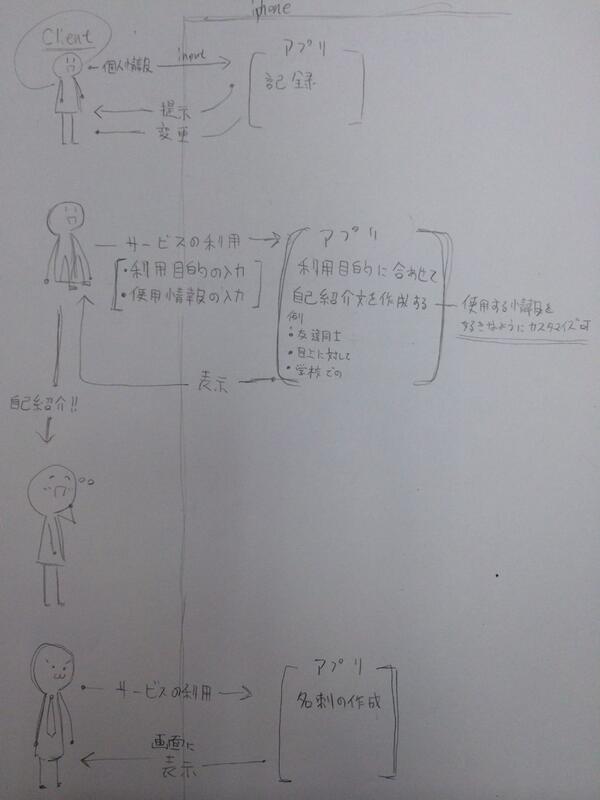 iphone
Client
個人情報
input
アプリ
記録
提示
変更
サービスの利用
・利用目的の入力
・使用情報の入力
アプリ
利用目的に合わせて
自己紹介文を作成する
例
・友達同士
・目上に対して
・学校での
使用する情報を
好きなようにカスタマイズ可
表示
自己紹介!!
サービスの利用
アプリ
名刺の作成
画面に
表示